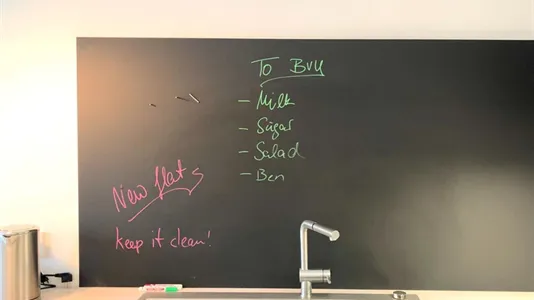 To Buy
- Milk
- Sugar
- Salad
- Ben
New flat
keep it clean!